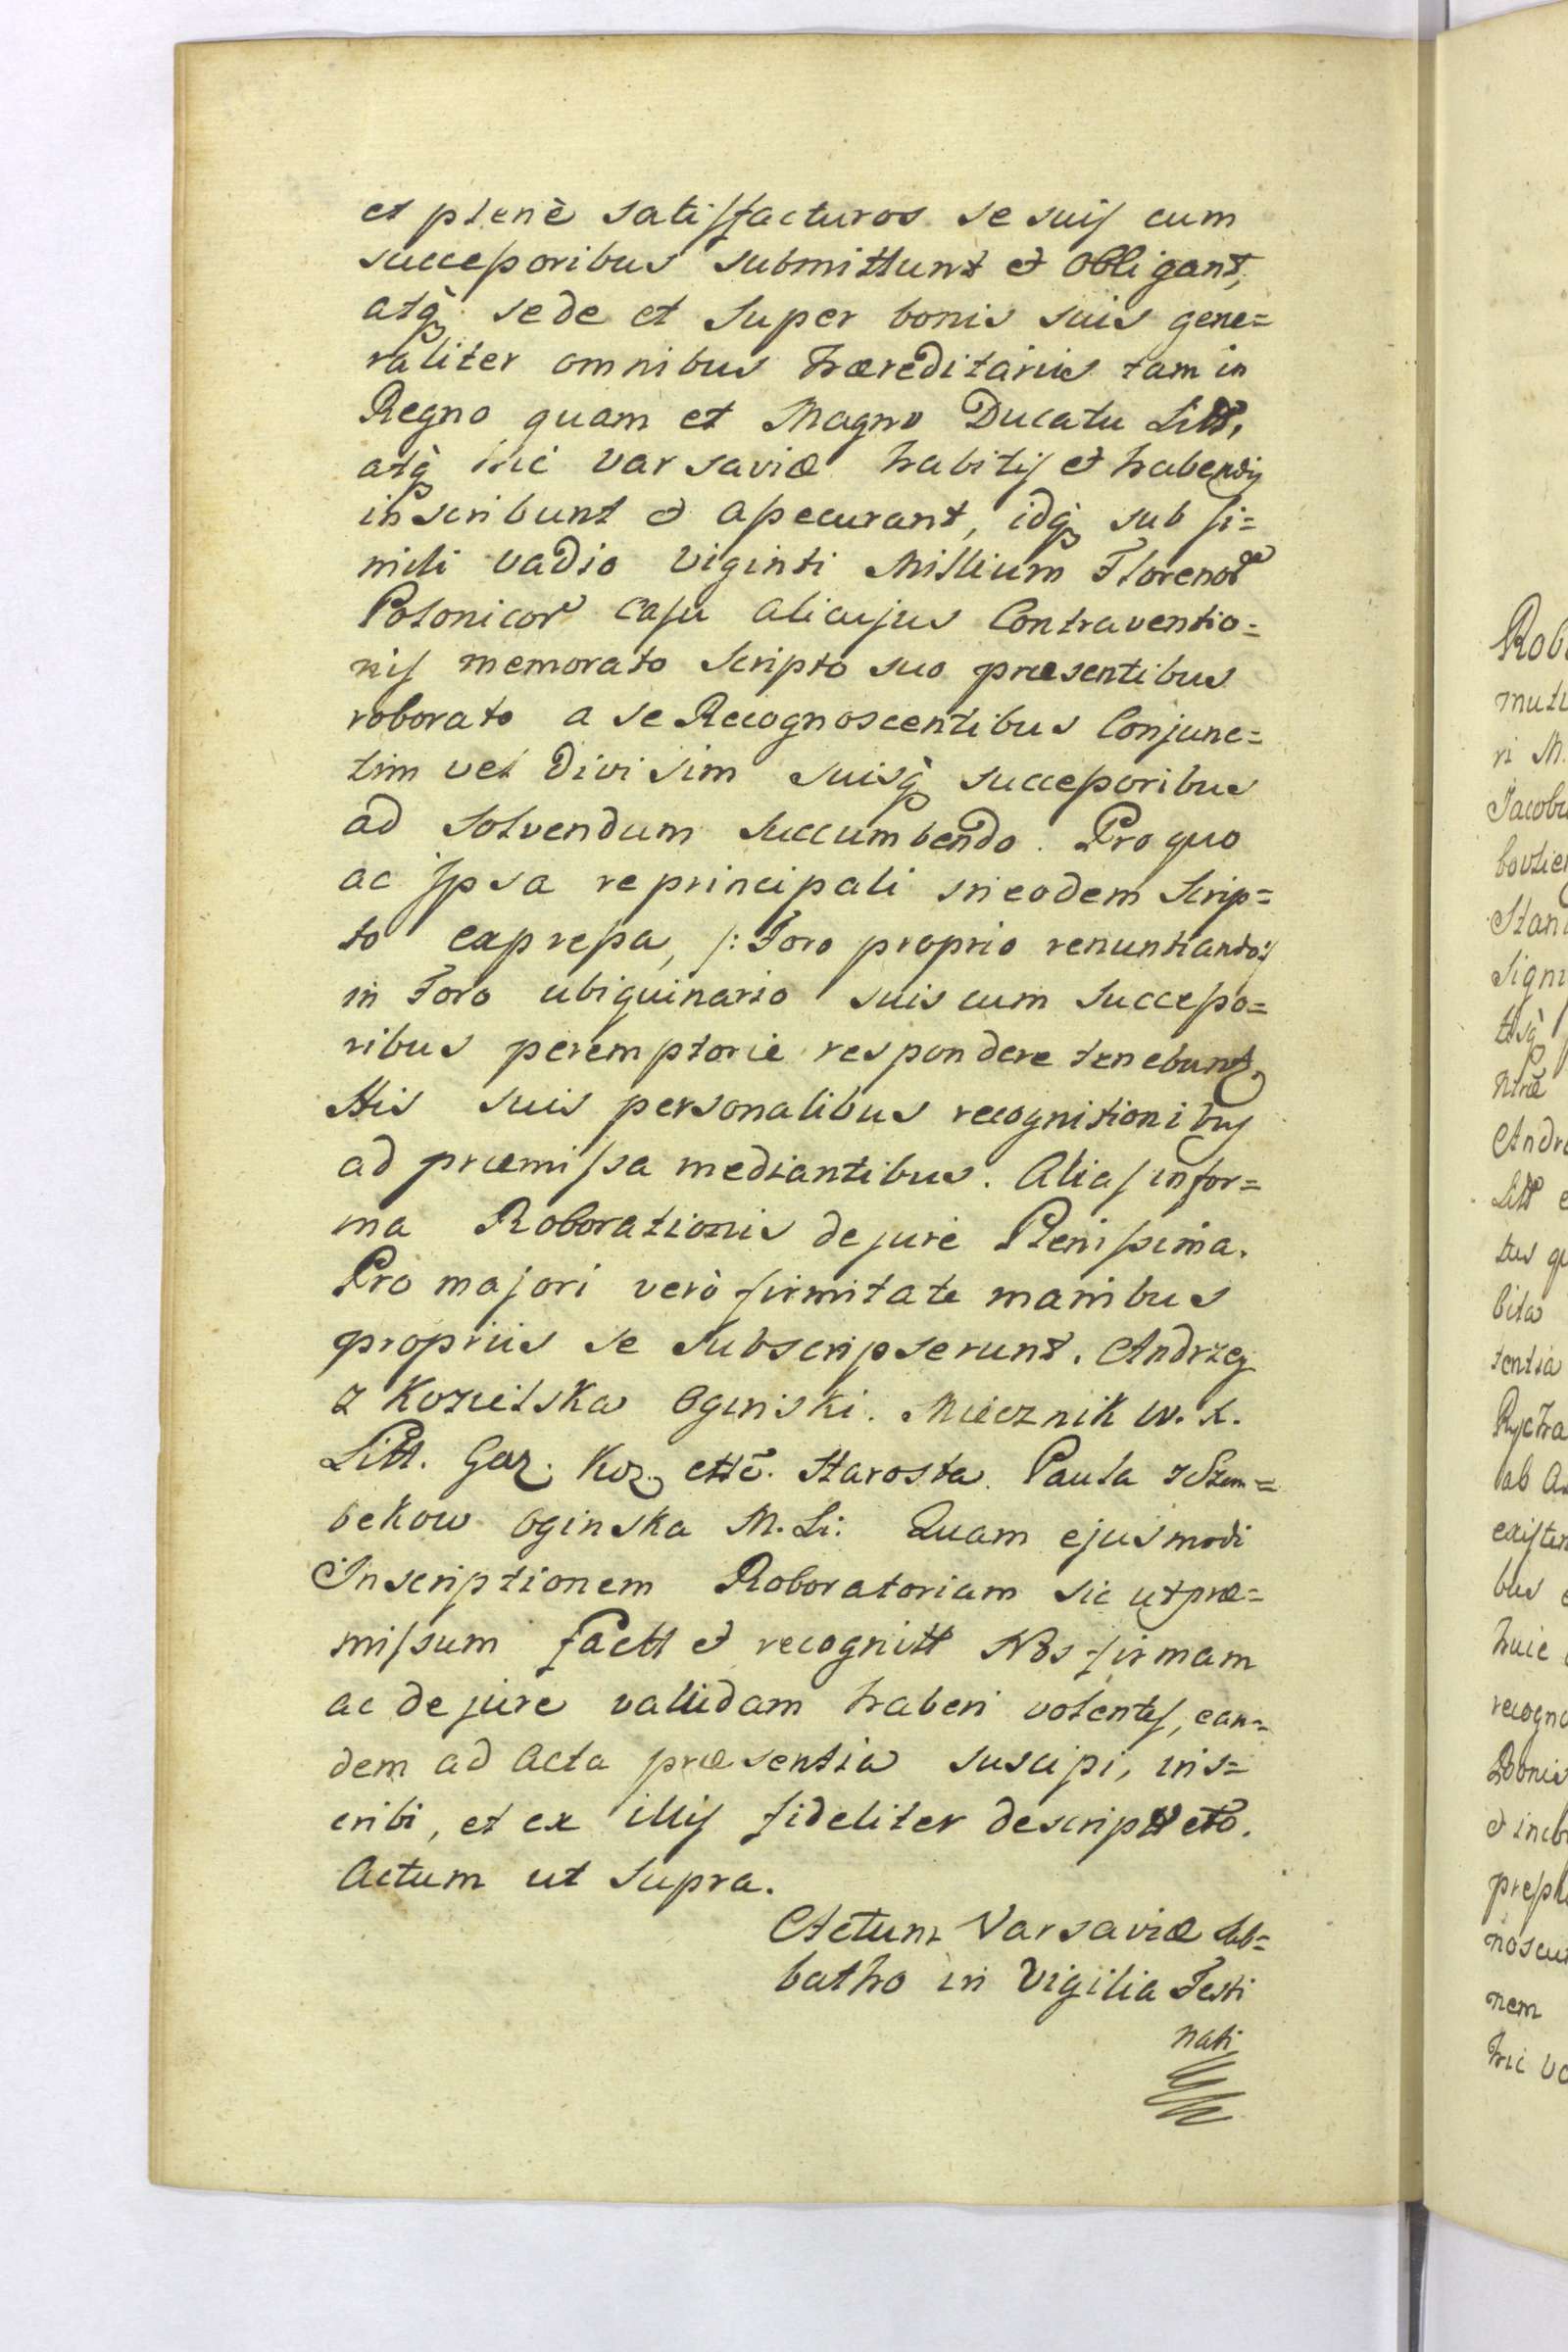 et plenè satisfacturos se suis cum
successoribus submittunt et obligant,
atq̀ₔ se de et super bonis suis gene=
raliter omnibus hæreditariis tam in
Regno quam et Magno Ducatu Litt,
atq̀ₔ hic Varsaviæ habitis et habendis
inscribunt et assecurant, idq̀ₔ sub si=
mili vadio viginti Millium Florenor
Polonicor casu alicujus Contraventio=
nis memorato scripto suo præsentibus
roborato a se Recognoscentibus Conjunc=
tim vel divisim suisq̀ₔ successoribus
ad solvendum succumbendo. Pro quo
ac ipsa re principali in eodem Scrip=
to expressa, /: Foro proprio renuntiando :/
in Foro ubiquinario suis cum successo=
ribus peremptorie respondere tenebunt,
His suis personalibus recognitionibus
ad præmissa mediantibus. Alias in for=
ma Roborationis de jure Plenissima.
Pro majori verò firmitate manibus
propriis se subscripserunt. Andrzey
z Kozielska Oginski. Miecznik W. X.
Litt. Goz. Koz. ettc. Starosta. Paula z Szem=
bekow Oginska M. Li: Quam ejusmodi
Inscriptionem Roboratoriam sic ut præ=
missum factt et recognitt Nos firmam
ac de jure validam haberi volentes, ean=
dem ad Acta præsentia suscipi, ins=
cribi, et ex illis fideliter descriptt etc.
Actum ut supra.
Actum Varsaviæ Sab=
batho in Vigilia Festi
nati
Rob
muti
ri M.
Jacobu
Stan
Signi
tisq̀ₔ
Andre
Litt e
tus qu
bita
tentia
Rycha
ab A
existen
bus
huic
recogno
Bonis
et
noscu
nem
hic Va